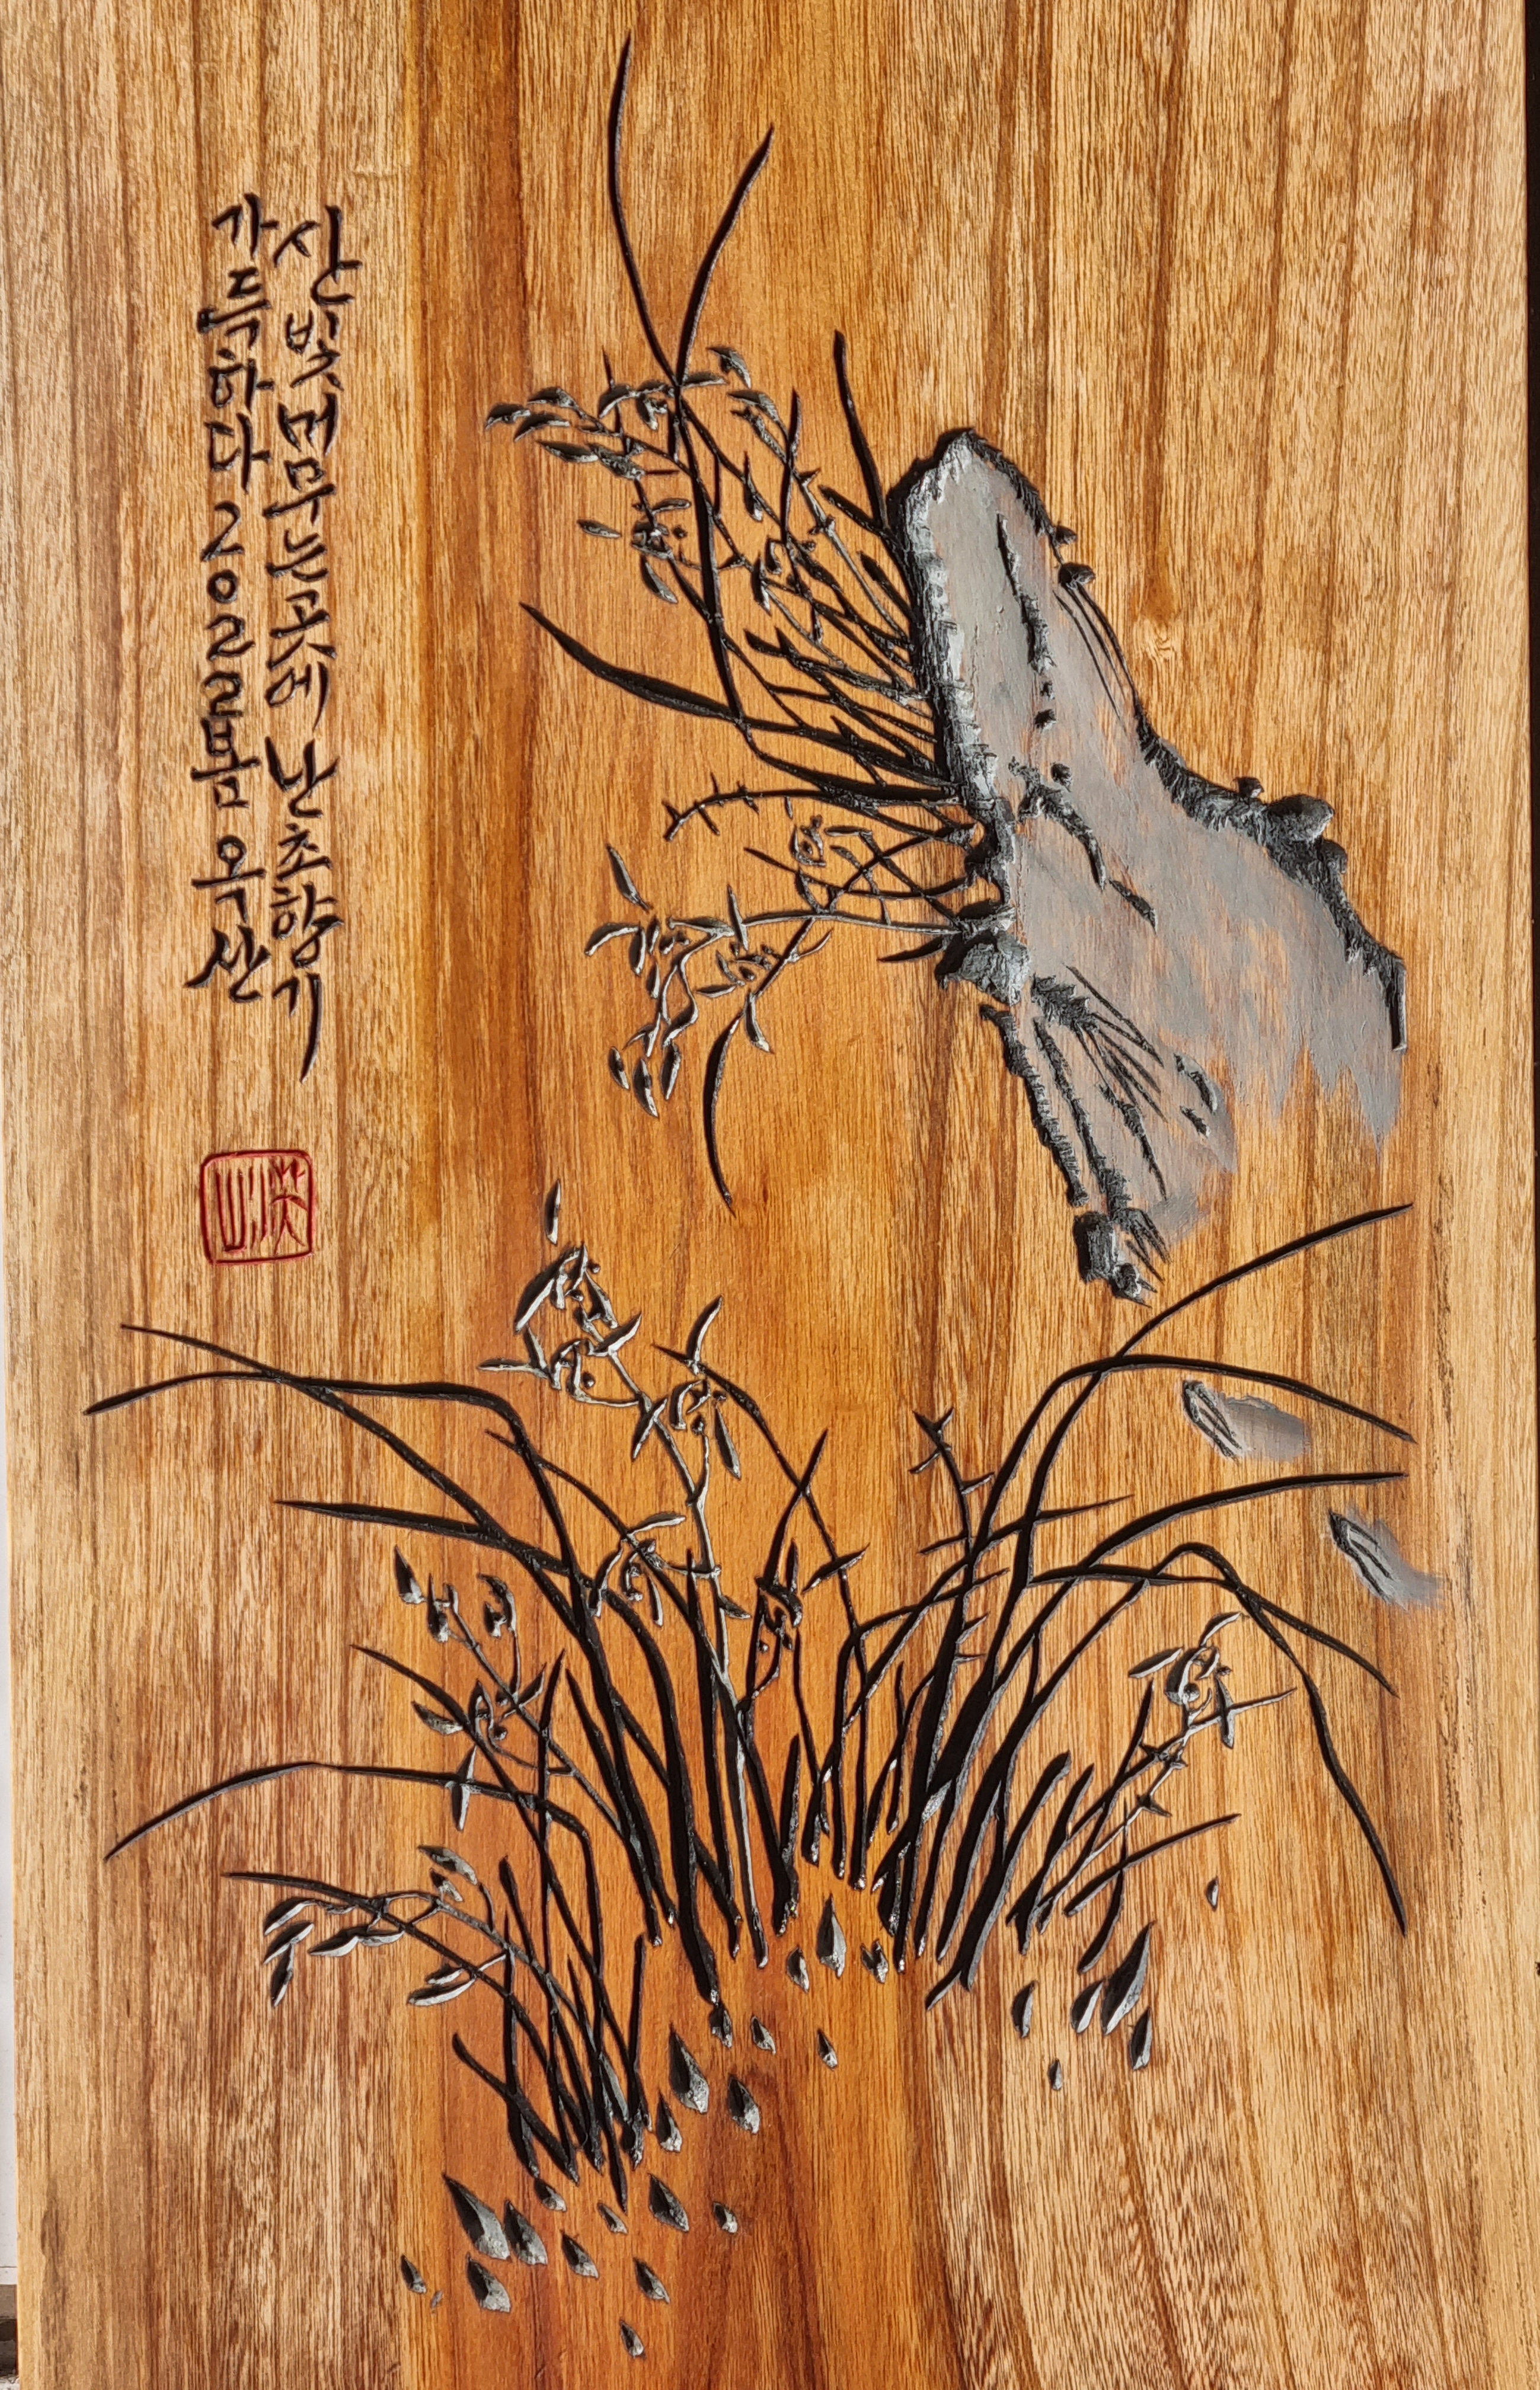 산빛 머무는 곳에 난초향기
가득하다 2022 봄 옥산